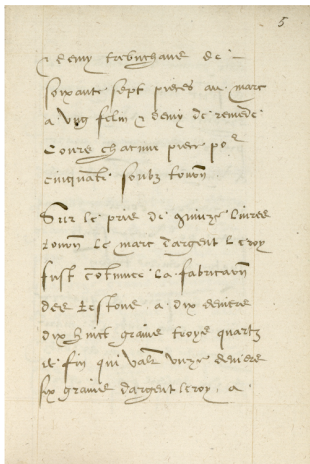 5
& demy trebuchans de -
soixante sept pieces au marc
a ung felin & demy de remede
Cours chacune piece po^r
cinquante soubz tourn
Sur le pried de quinze livres
tourn le marc dargent le roy
fust continuee la fabricaon
des testons a dix deniers
dix huict grains troys quartz
de fin qui vall unze deniers
six grains dargent le roy, a